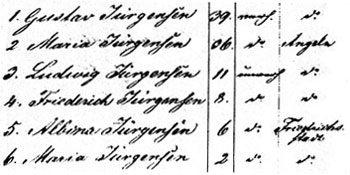 1. Gustav Jürgensen 39. verh. do.
2 Maria Jürgensen 36. do. Angeln
3. Ludwig Jürgensen 11 unverh do
4. Friederich Jürgensen 8. do do
5. Albena Jürgensen 6 do. Friedrichs-
stadt
6. Maria Jürgensen 2 do. do.